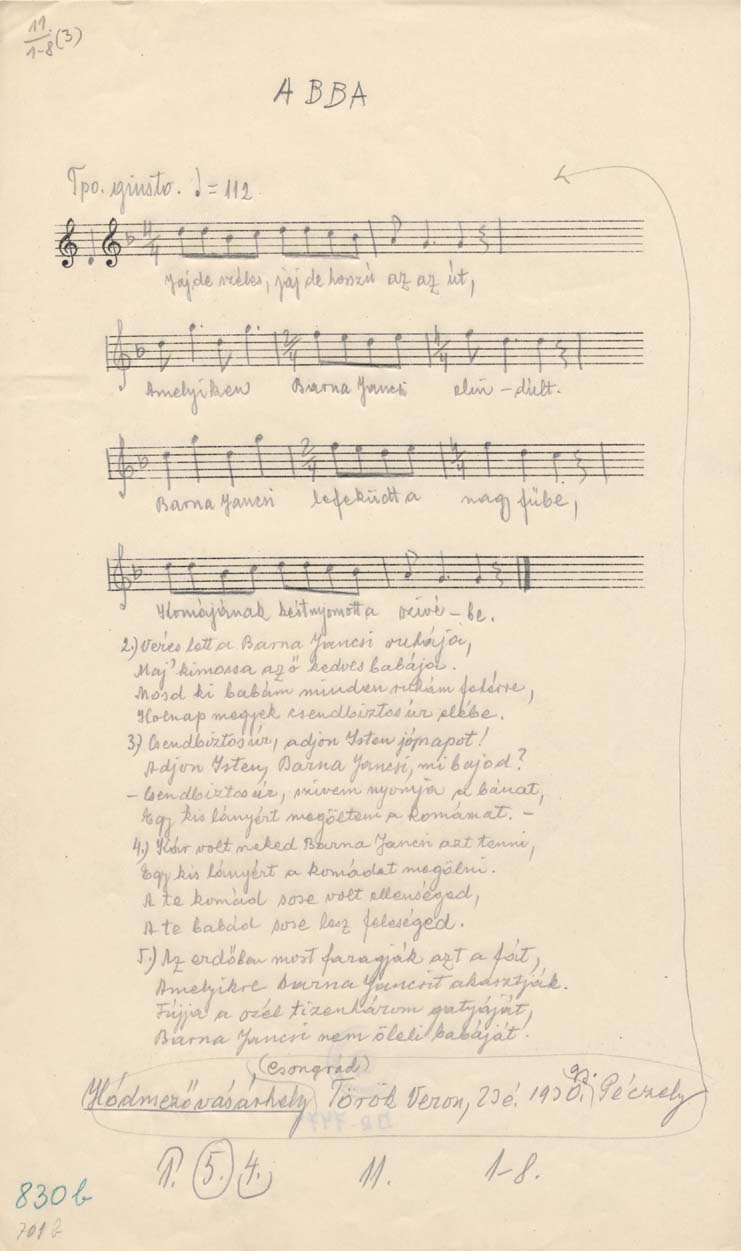 11.
1-8 (3)
ABBA
Tpo. giusto. ♩ = 112.
4/4
Jaj de széles, jaj de hoszú az az út,
2/4 4/4
Amelyiken Barna Jancsi elin-dult.
2/4 4/4
Barna Jancsi lefeküdt a nagy fűbe,
Komájának kést nyomott a szívé-be.
2.) Véres lett a Barna Jancsi ruhája,
Maj' kimossa az ő kedves babája.
Mosd ki babám minden ruhám fehérre,
Holnap megyek csendbiztos úr elébe.
3.) Csendbiztos úr, adjon Isten jónapot!
Adjon Isten, Barna Jancsi, mi bajod?
- Csendbiztos úr, szívem nyomja a bánat,
Egy kis lányért megöltem a komámat. -
4.) Kár volt neked Barna Jancsi azt tenni,
Egy kis lányért a komádat megölni.
A te komád sose volt ellenséged,
A te babád sose lesz feleséged.
5.) Az erdőben most faragják azt a fát,
Amelyikre Barna Jancsit akasztják.
Fújja a szél tizenhárom gatyáját,
Barna Jancsi nem öleli babáját.
(Csongrád)
Hódmezővásárhely Török Veron, 23 é. 1930. Péczely
1. 5. 4. 11. 1-8.
830b
701b